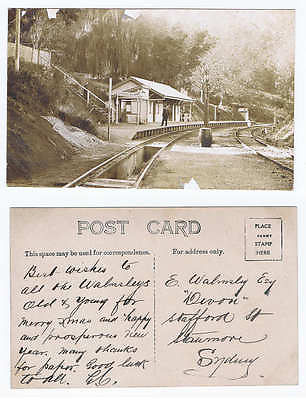 POST CARD
This space may be used for correspondence.
For address only.
PLACE
PENNY
STAMP
HERE
Best wishes to
all the Walmsleys
Old & Young for
Merry Xmas and happy
and prosperous New
Year. Many thanks
for paper. Good luck
to all.
E. Walmsly Esq
"Devon"
Stafford St
Stanmore
Sydney